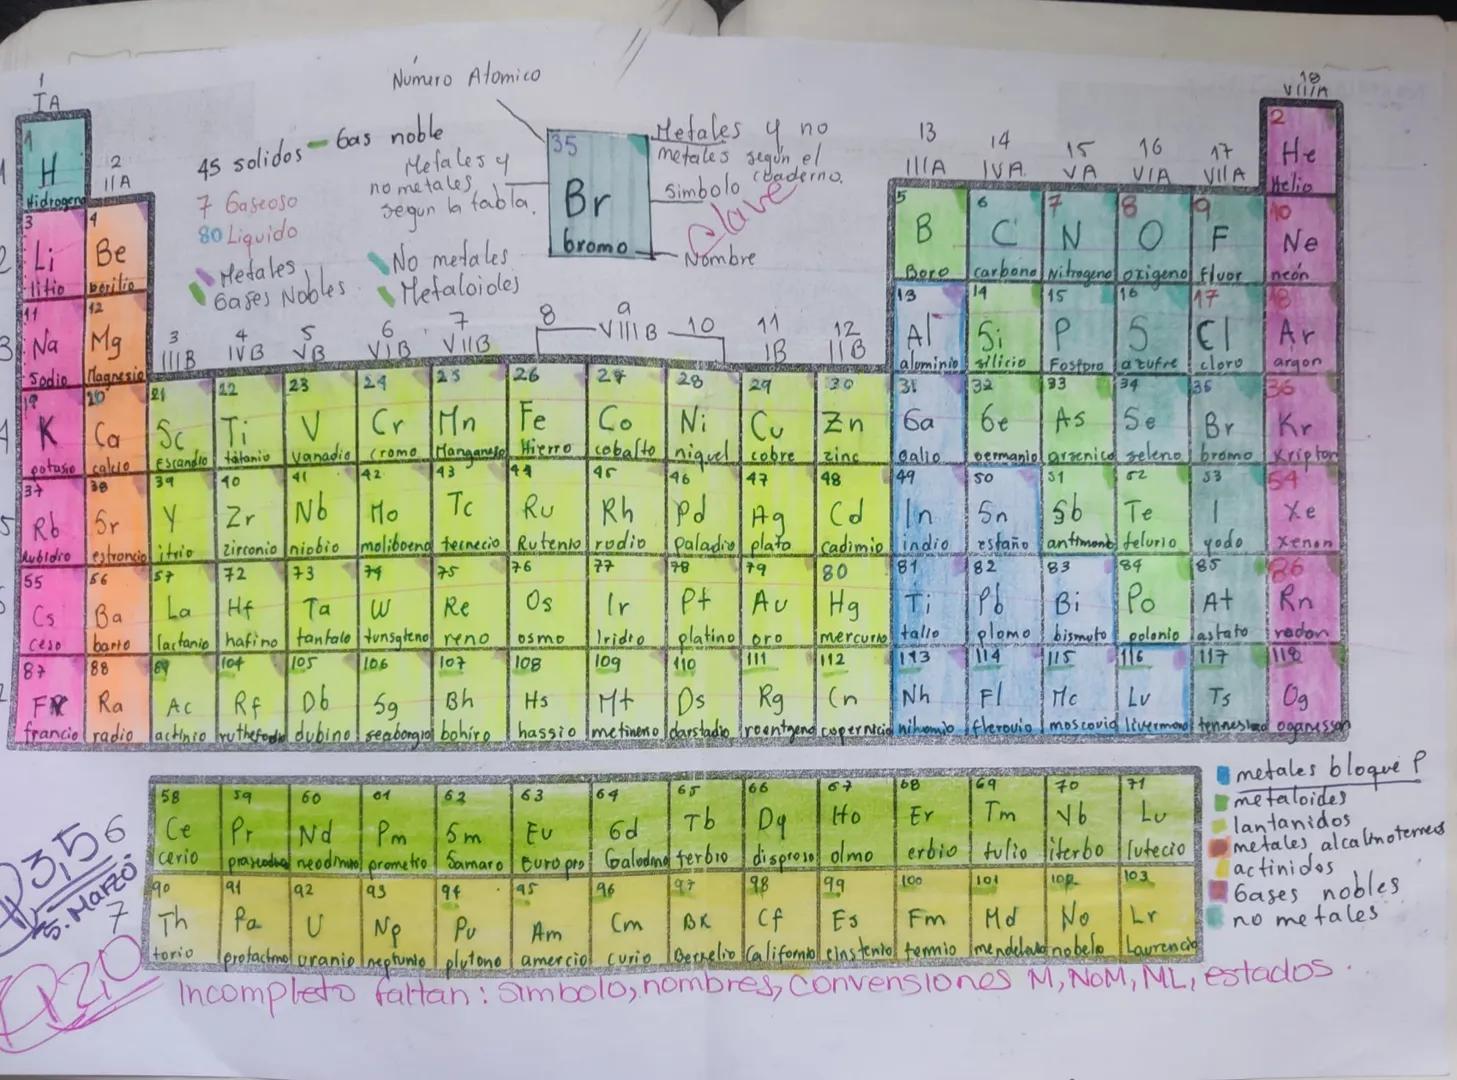 Número Atomico
1
IA
18
VIIIA
45 solidos
Gas noble
7 Gaseoso
80 Liquido
Metales
Gases Nobles
Metales y
no metales
segun la tabla.
No metales
Metaloides
35
Br
bromo
Metales y no
metales según el
cuaderno.
simbolo
Clave
Nombre
2
IIA
13 14 15 16 17
IIIA IVA VA VIA VIIA
3 4 5 6 7 8 9 10 11 12
IIIB IVB VB VIB VIIB VIIIB IB IIB
1 2
H He
Hidrogeno Helio
3 4 5 6 7 8 9 10
Li Be B C N O F Ne
litio berilio Boro carbono Nitrogeno oxigeno fluor neón
11 12 13 14 15 16 17 18
Na Mg Al Si P S Cl Ar
Sodio Magnesio aluminio silicio Fosforo azufre cloro argon
19 20 21 22 23 24 25 26 27 28 29 30 31 32 33 34 35 36
K Ca Sc Ti V Cr Mn Fe Co Ni Cu Zn Ga Ge As Se Br Kr
potasio calcio Escandio titanio Vanadio cromo Manganeso Hierro cobalto niquel cobre zinc Galio germanio arsenico seleno bromo Kripton
37 38 39 40 41 42 43 44 45 46 47 48 49 50 51 52 53 54
Rb Sr Y Zr Nb Mo Tc Ru Rh Pd Ag Cd In Sn Sb Te I Xe
Rubidio estroncio itrio zirconio niobio moliboeno tecnecio Rutenio rodio Paladio plata cadimio indio estaño antimonio telurio yodo Xenon
55 56 57 72 73 74 75 76 77 78 79 80 81 82 83 84 85 86
Cs Ba La Hf Ta W Re Os Ir Pt Au Hg Ti Pb Bi Po At Rn
ceso bario lactanio hafino tantalo tunsgteno reno osmo Iridio platino oro mercurio talio plomo bismuto polonio astato radon
87 88 89 104 105 106 107 108 109 110 111 112 113 114 115 116 117 118
Fr Ra Ac Rf Db Sg Bh Hs Mt Ds Rg Cn Nh Fl Mc Lv Ts Og
francio radio actinio dubino seaborgio bohiro hassio metineno darstadio roentgeno copernicio nihomio flerovio moscovio
58 59 60 61 62 63 64 65 66 67 68 69 70 71
Ce Pr Nd Pm Sm Eu Gd Tb Dy Ho Er Tm Yb Lu
cerio neodimio prometio Samaro Europio terbio disproso olmo erbio tulio iterbo lutecio
90 91 92 93 94 95 96 97 98 99 100 101 102 103
Th Pa U Np Pu Am Cm BK Cf Es Fm Md No Lr
torio protactino uranio neptunio plutono amercio curio Berkelio Californio einstenio fermio nobelo Laurencio
metales bloque P
metaloides
lantanidos
metales alcalinoterreos
actinidos
Gases nobles
no metales
3,5
5. Marzo
6
7
2,0
Incompleto faltan: simbolo, nombres, convensiones M, NoM, ML, estados.